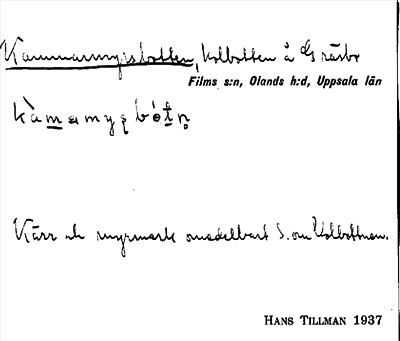 Kammarmyrsbotten, kolbotten å Gräsbo
Films s:n, Olands h:d, Uppsala län
Kärr och myrmark omedelbart S. om Kolbottnen.
HANS TILLMAN 1937